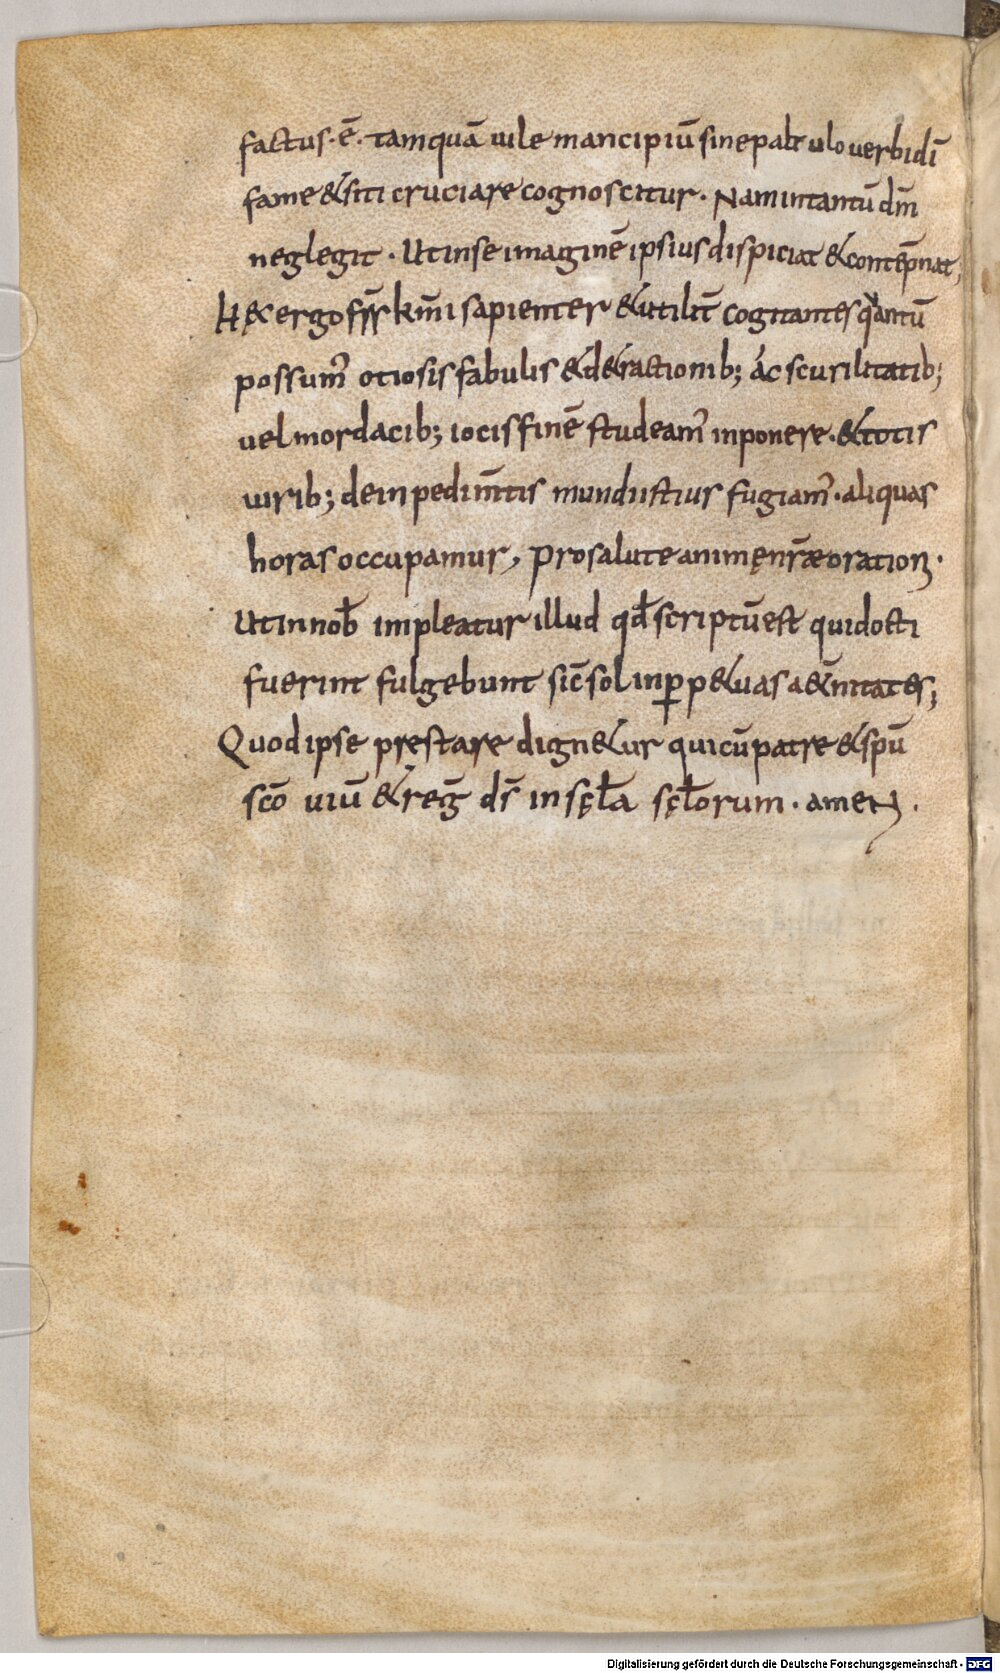 factus·ē· tamquā uile mancipiū sine pabulo uerbi dī
fame & siti cruciare cognoscitur· Nam intantū dm̄
neglegit· Ut in se imaginē ipsius dispiciat & contēpnat;
Hęc ergo fr̄s km̄i sapienter & utilit̄ cogitantes quantū
possum̄ otiosis fabulis & detractionib; ác scurilitatib;
uel mordacib; iocis finē studeam̄ inponere· & totis
uirib; de inpedim̄tis mundi istius fugiam̄· aliquas
horas occupamur, pro salute animę nr̄ae oration̄·
Ut in nob̄ impleatur illud qd̄ scriptū est qui docti
fuerint fulgebunt sic̄ sol in ꝑp&uas a&n̄itates;
Quod ipse prestare dign&ur qui cū patre & sp̄u
sc̄o uiu̅ & reḡ ds̄ in sęcl̄a sęcl̄orum· amen·
Digitalisierung gefördert durch die Deutsche Forschungsgemeinschaft - DFG